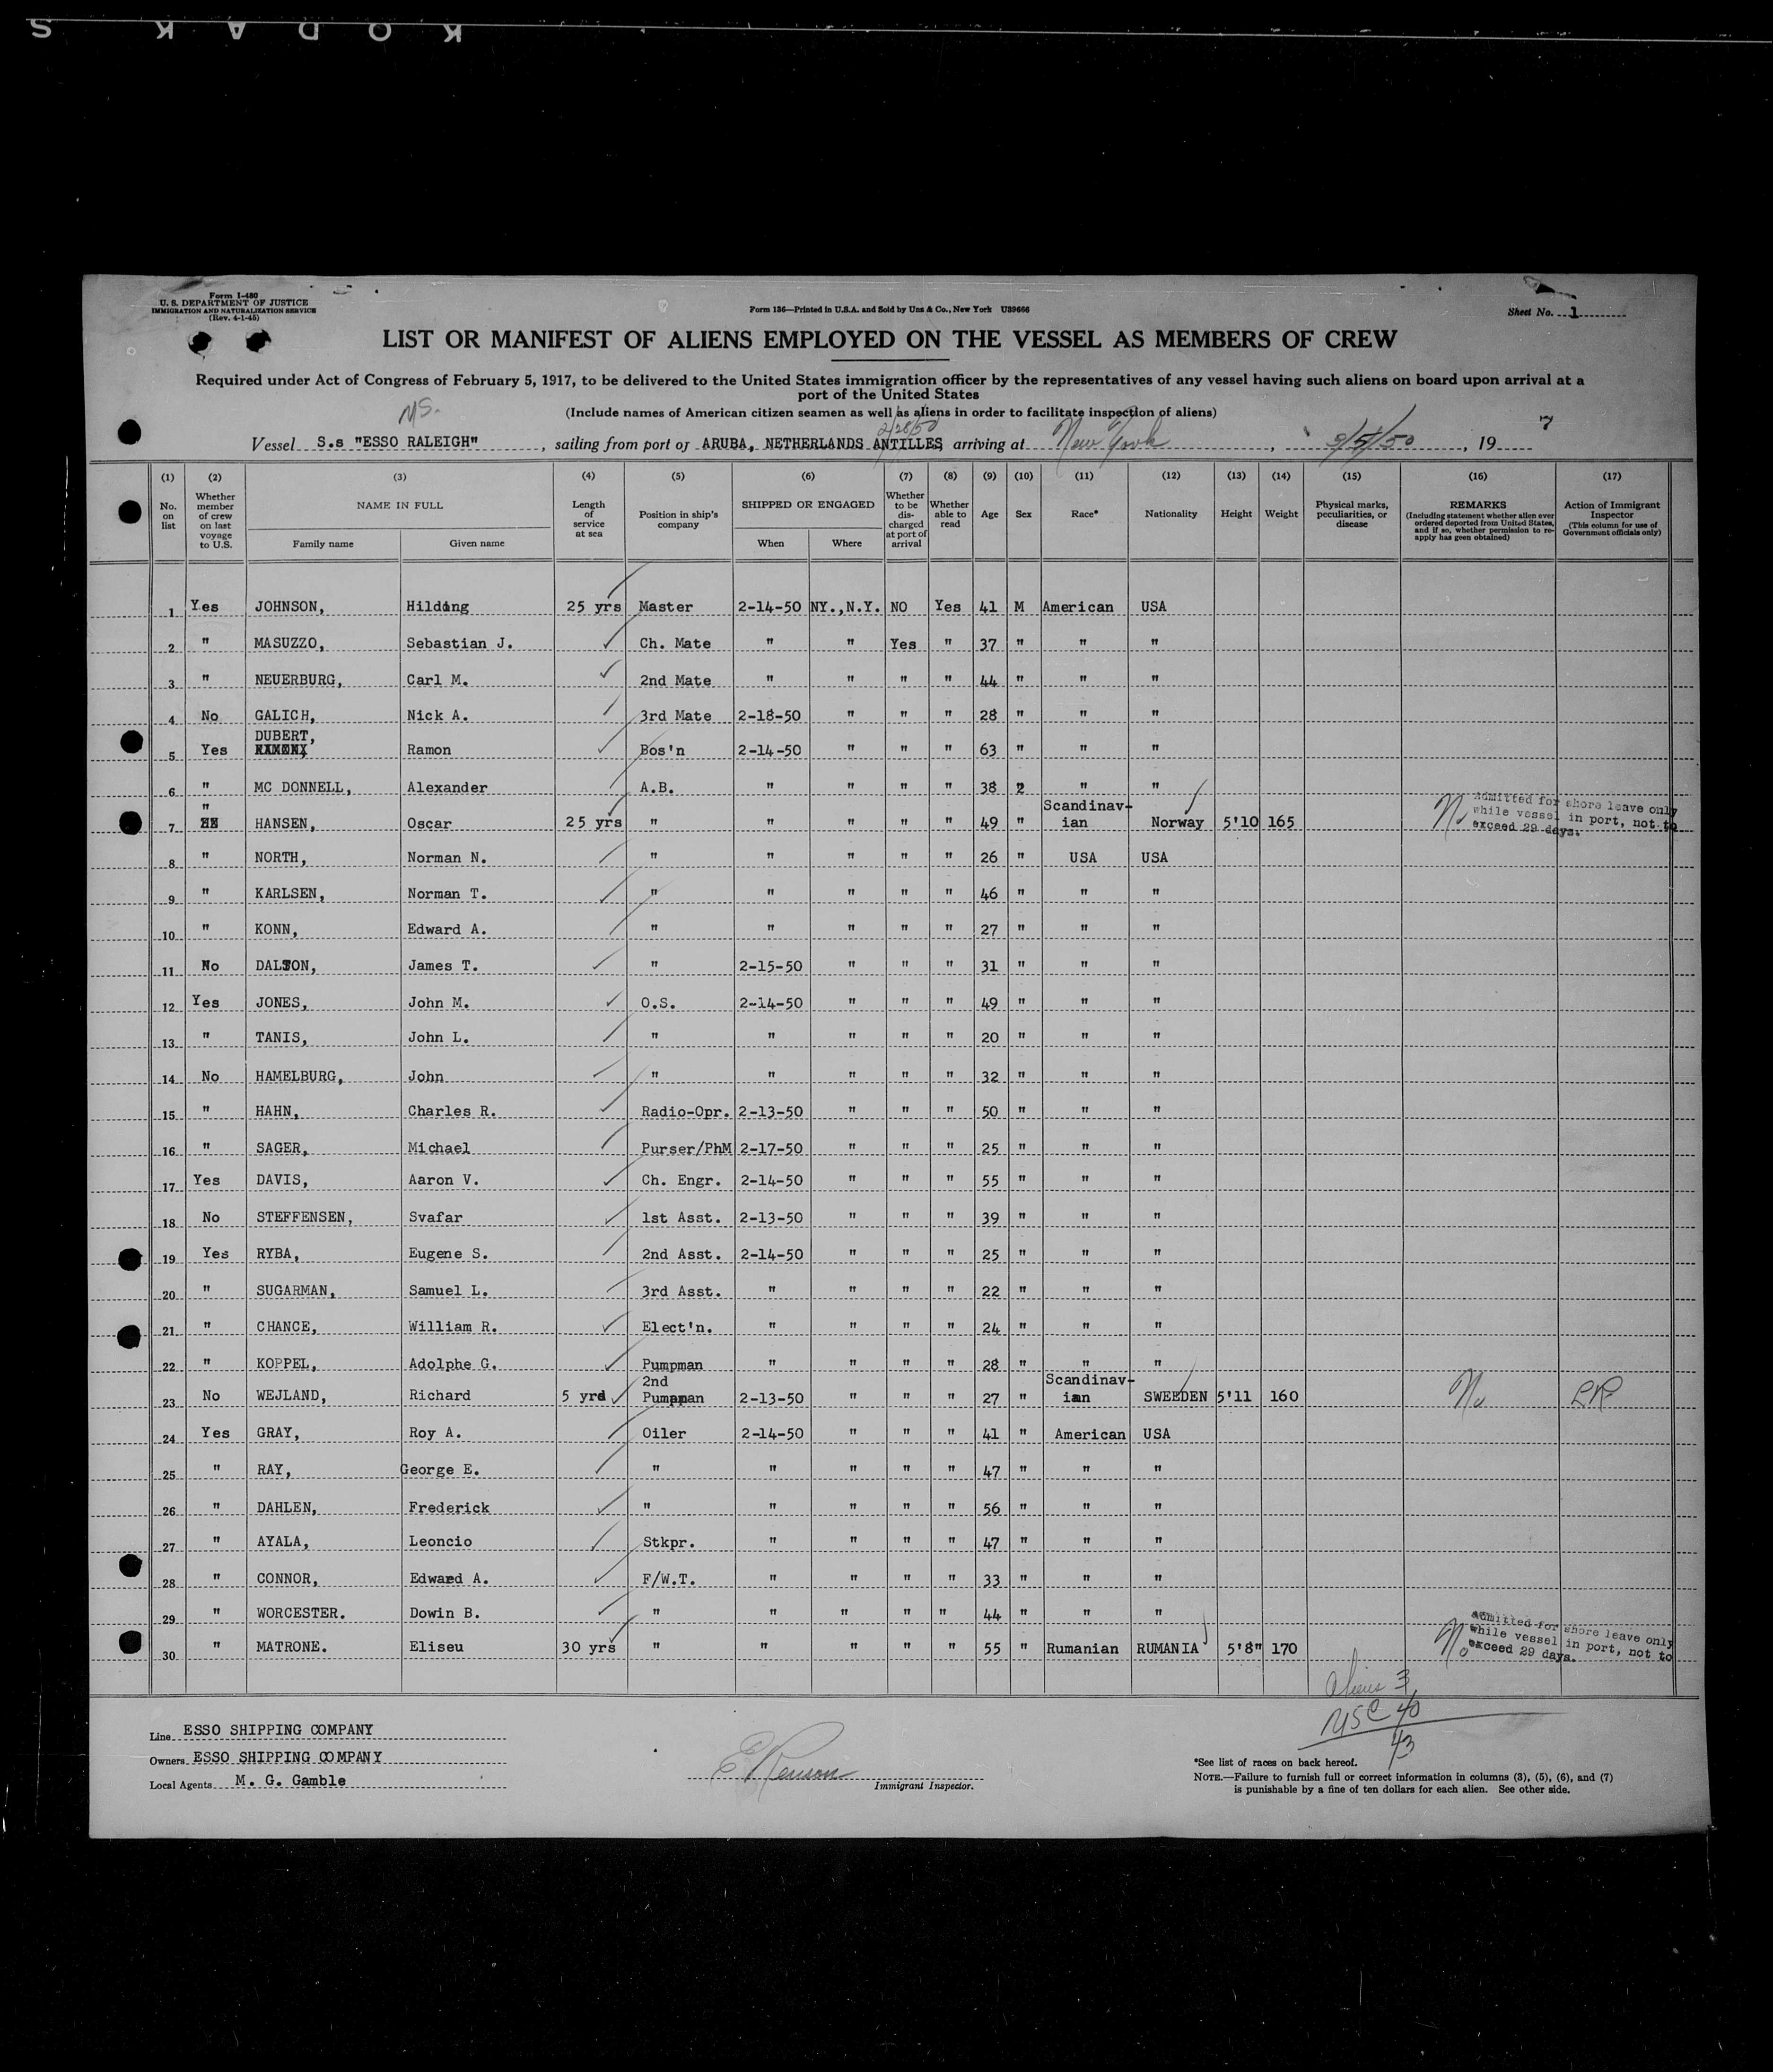 KODAK S
Form I-480
U. S. DEPARTMENT OF JUSTICE
IMMIGRATION AND NATURALIZATION SERVICE
(Rev. 4-1-45)
Form 136—Printed in U.S.A. and Sold by Unz & Co., New York U39666
Sheet No. 1
LIST OR MANIFEST OF ALIENS EMPLOYED ON THE VESSEL AS MEMBERS OF CREW
Required under Act of Congress of February 5, 1917, to be delivered to the United States immigration officer by the representatives of any vessel having such aliens on board upon arrival at a
port of the United States
(Include names of American citizen seamen as well as aliens in order to facilitate inspection of aliens)
MS.
2/28/50
7
Vessel S.s "ESSO RALEIGH", sailing from port of ARUBA, NETHERLANDS ANTILLES, arriving at New York, 3/5/50, 19
(1) (2) (3) (4) (5) (6) (7) (8) (9) (10) (11) (12) (13) (14) (15) (16) (17)
No. on list
Whether member of crew on last voyage to U.S.
NAME IN FULL
Family name Given name
Length of service at sea
Position in ship's company
SHIPPED OR ENGAGED
When Where
Whether to be discharged at port of arrival
Whether able to read
Age Sex Race* Nationality Height Weight
Physical marks, peculiarities, or disease
REMARKS
(Including statement whether alien ever ordered deported from United States, and if so, whether permission to re-apply has been obtained)
Action of Immigrant Inspector
(This column for use of Government officials only)
1 Yes JOHNSON, Hilding 25 yrs Master 2-14-50 NY.,N.Y. NO Yes 41 M American USA
2 " MASUZZO, Sebastian J. Ch. Mate " " Yes " 37 " " "
3 " NEUERBURG, Carl M. 2nd Mate " " " " 44 " " "
4 No GALICH, Nick A. 3rd Mate 2-18-50 " " " 28 " " "
5 Yes DUBERT, Ramon Bos'n 2-14-50 " " " 63 " " "
6 " MC DONNELL, Alexander A.B. " " " " 38 " " "
7 " HANSEN, Oscar 25 yrs " " " " " 49 " Scandinav-ian Norway 5'10 165 No Admitted for shore leave only while vessel in port, not to exceed 29 days.
8 " NORTH, Norman N. " " " " " 26 " USA USA
9 " KARLSEN, Norman T. " " " " " 46 " " "
10 " KONN, Edward A. " " " " " 27 " " "
11 No DALTON, James T. " 2-15-50 " " " 31 " " "
12 Yes JONES, John M. O.S. 2-14-50 " " " 49 " " "
13 " TANIS, John L. " " " " " 20 " " "
14 No HAMELBURG, John " " " " " 32 " " "
15 " HAHN, Charles R. Radio-Opr. 2-13-50 " " " 50 " " "
16 " SAGER, Michael Purser/PhM 2-17-50 " " " 25 " " "
17 Yes DAVIS, Aaron V. Ch. Engr. 2-14-50 " " " 55 " " "
18 No STEFFENSEN, Svafar 1st Asst. 2-13-50 " " " 39 " " "
19 Yes RYBA, Eugene S. 2nd Asst. 2-14-50 " " " 25 " " "
20 " SUGARMAN, Samuel L. 3rd Asst. " " " " 22 " " "
21 " CHANCE, William R. Elect'n. " " " " 24 " " "
22 " KOPPEL, Adolphe G. Pumpman " " " " 28 " " "
23 No WEJLAND, Richard 5 yrs 2nd Pumpman 2-13-50 " " " 27 " Scandinav-ian SWEEDEN 5'11 160 No LR
24 Yes GRAY, Roy A. Oiler 2-14-50 " " " 41 " American USA
25 " RAY, George E. " " " " " 47 " " "
26 " DAHLEN, Frederick " " " " " 56 " " "
27 " AYALA, Leoncio Stkpr. " " " " 47 " " "
28 " CONNOR, Edward A. F/W.T. " " " " 33 " " "
29 " WORCESTER. Dowin B. " " " " " 44 " " "
30 " MATRONE. Eliseu 30 yrs " " " " " 55 " Rumanian RUMANIA 5'8" 170 No Admitted for shore leave only while vessel in port, not to exceed 29 days.
Aliens 3
USC 40
43
Line ESSO SHIPPING COMPANY
Owners ESSO SHIPPING COMPANY
Local Agents M. G. Gamble
Immigrant Inspector.
*See list of races on back hereof.
NOTE.—Failure to furnish full or correct information in columns (3), (5), (6), and (7)
is punishable by a fine of ten dollars for each alien. See other side.